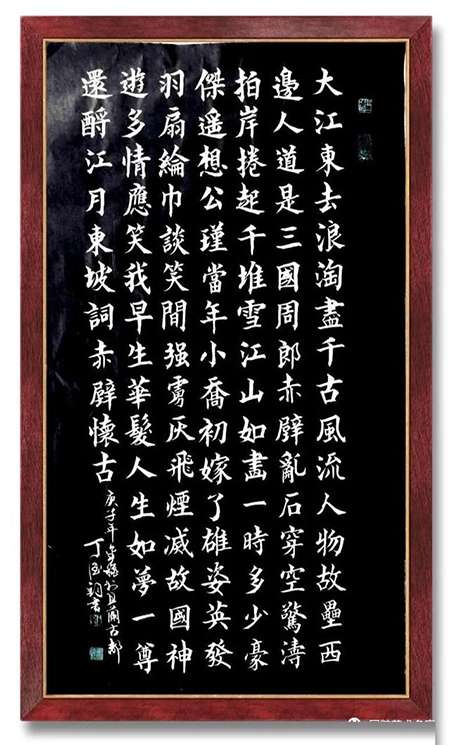 大江東去浪淘盡千古風流人物故壘西
邊人道是三國周郎赤壁亂石穿空驚濤
拍岸捲起千堆雪江山如畫一時多少豪
傑遥想公瑾當年小喬初嫁了雄姿英發
羽扇綸巾談笑間强虜灰飛煙滅故國神
遊多情應笑我早生華髮人生如夢一尊
還酹江月東坡詞赤壁懷古
庚子年於且蘭古都
丁書